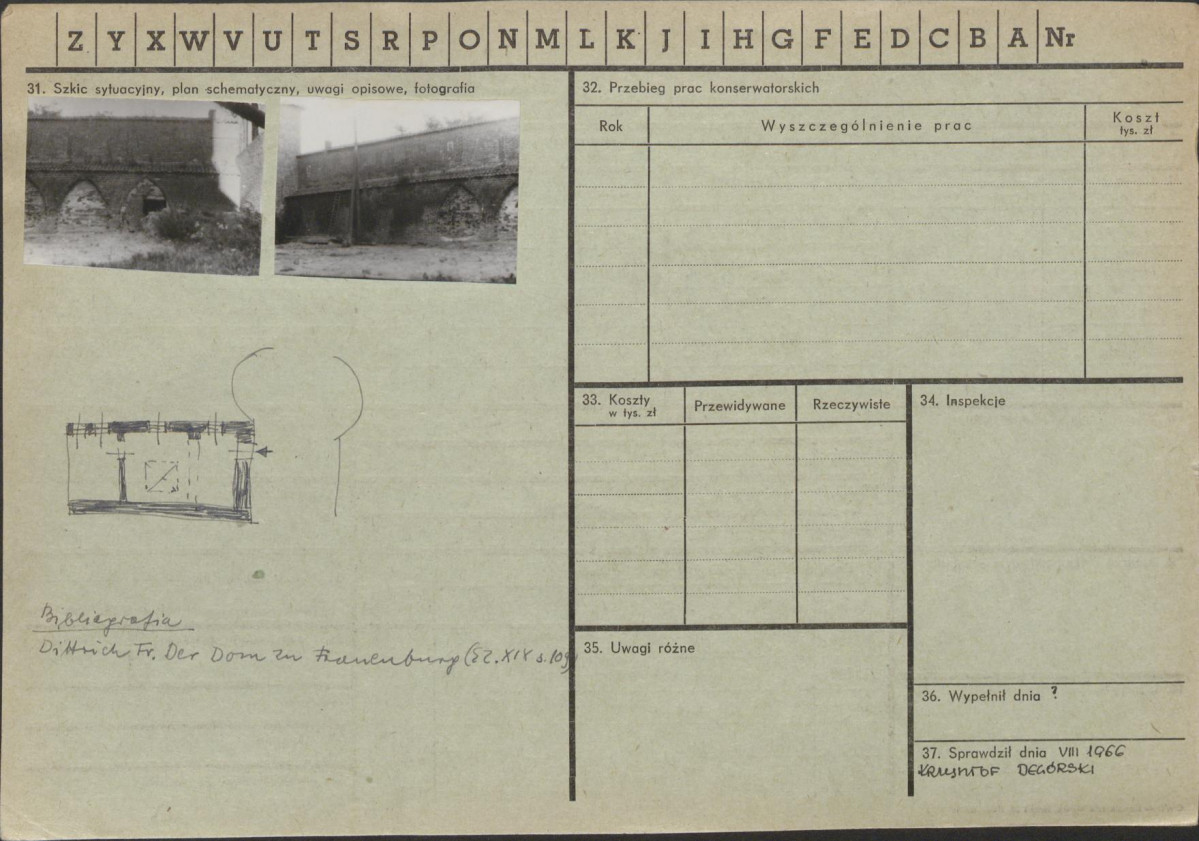 Z Y X W V U T S R P O N M L K J I H G F E D C B A Nr
31. Szkic sytuacyjny, plan schematyczny, uwagi opisowe, fotografia
Bibliografia
Dittrich Fr. Der Dom zu Frauenburg (EZ. XIX s. 109)
32. Przebieg prac konserwatorskich
Rok
Wyszczególnienie prac
Koszt
tys. zł
33. Koszty
w tys. zł
Przewidywane
Rzeczywiste
34. Inspekcje
35. Uwagi różne
36. Wypełnił dnia ?
37. Sprawdził dnia VIII 1966
KRZYSZTOF DEGÓRSKI